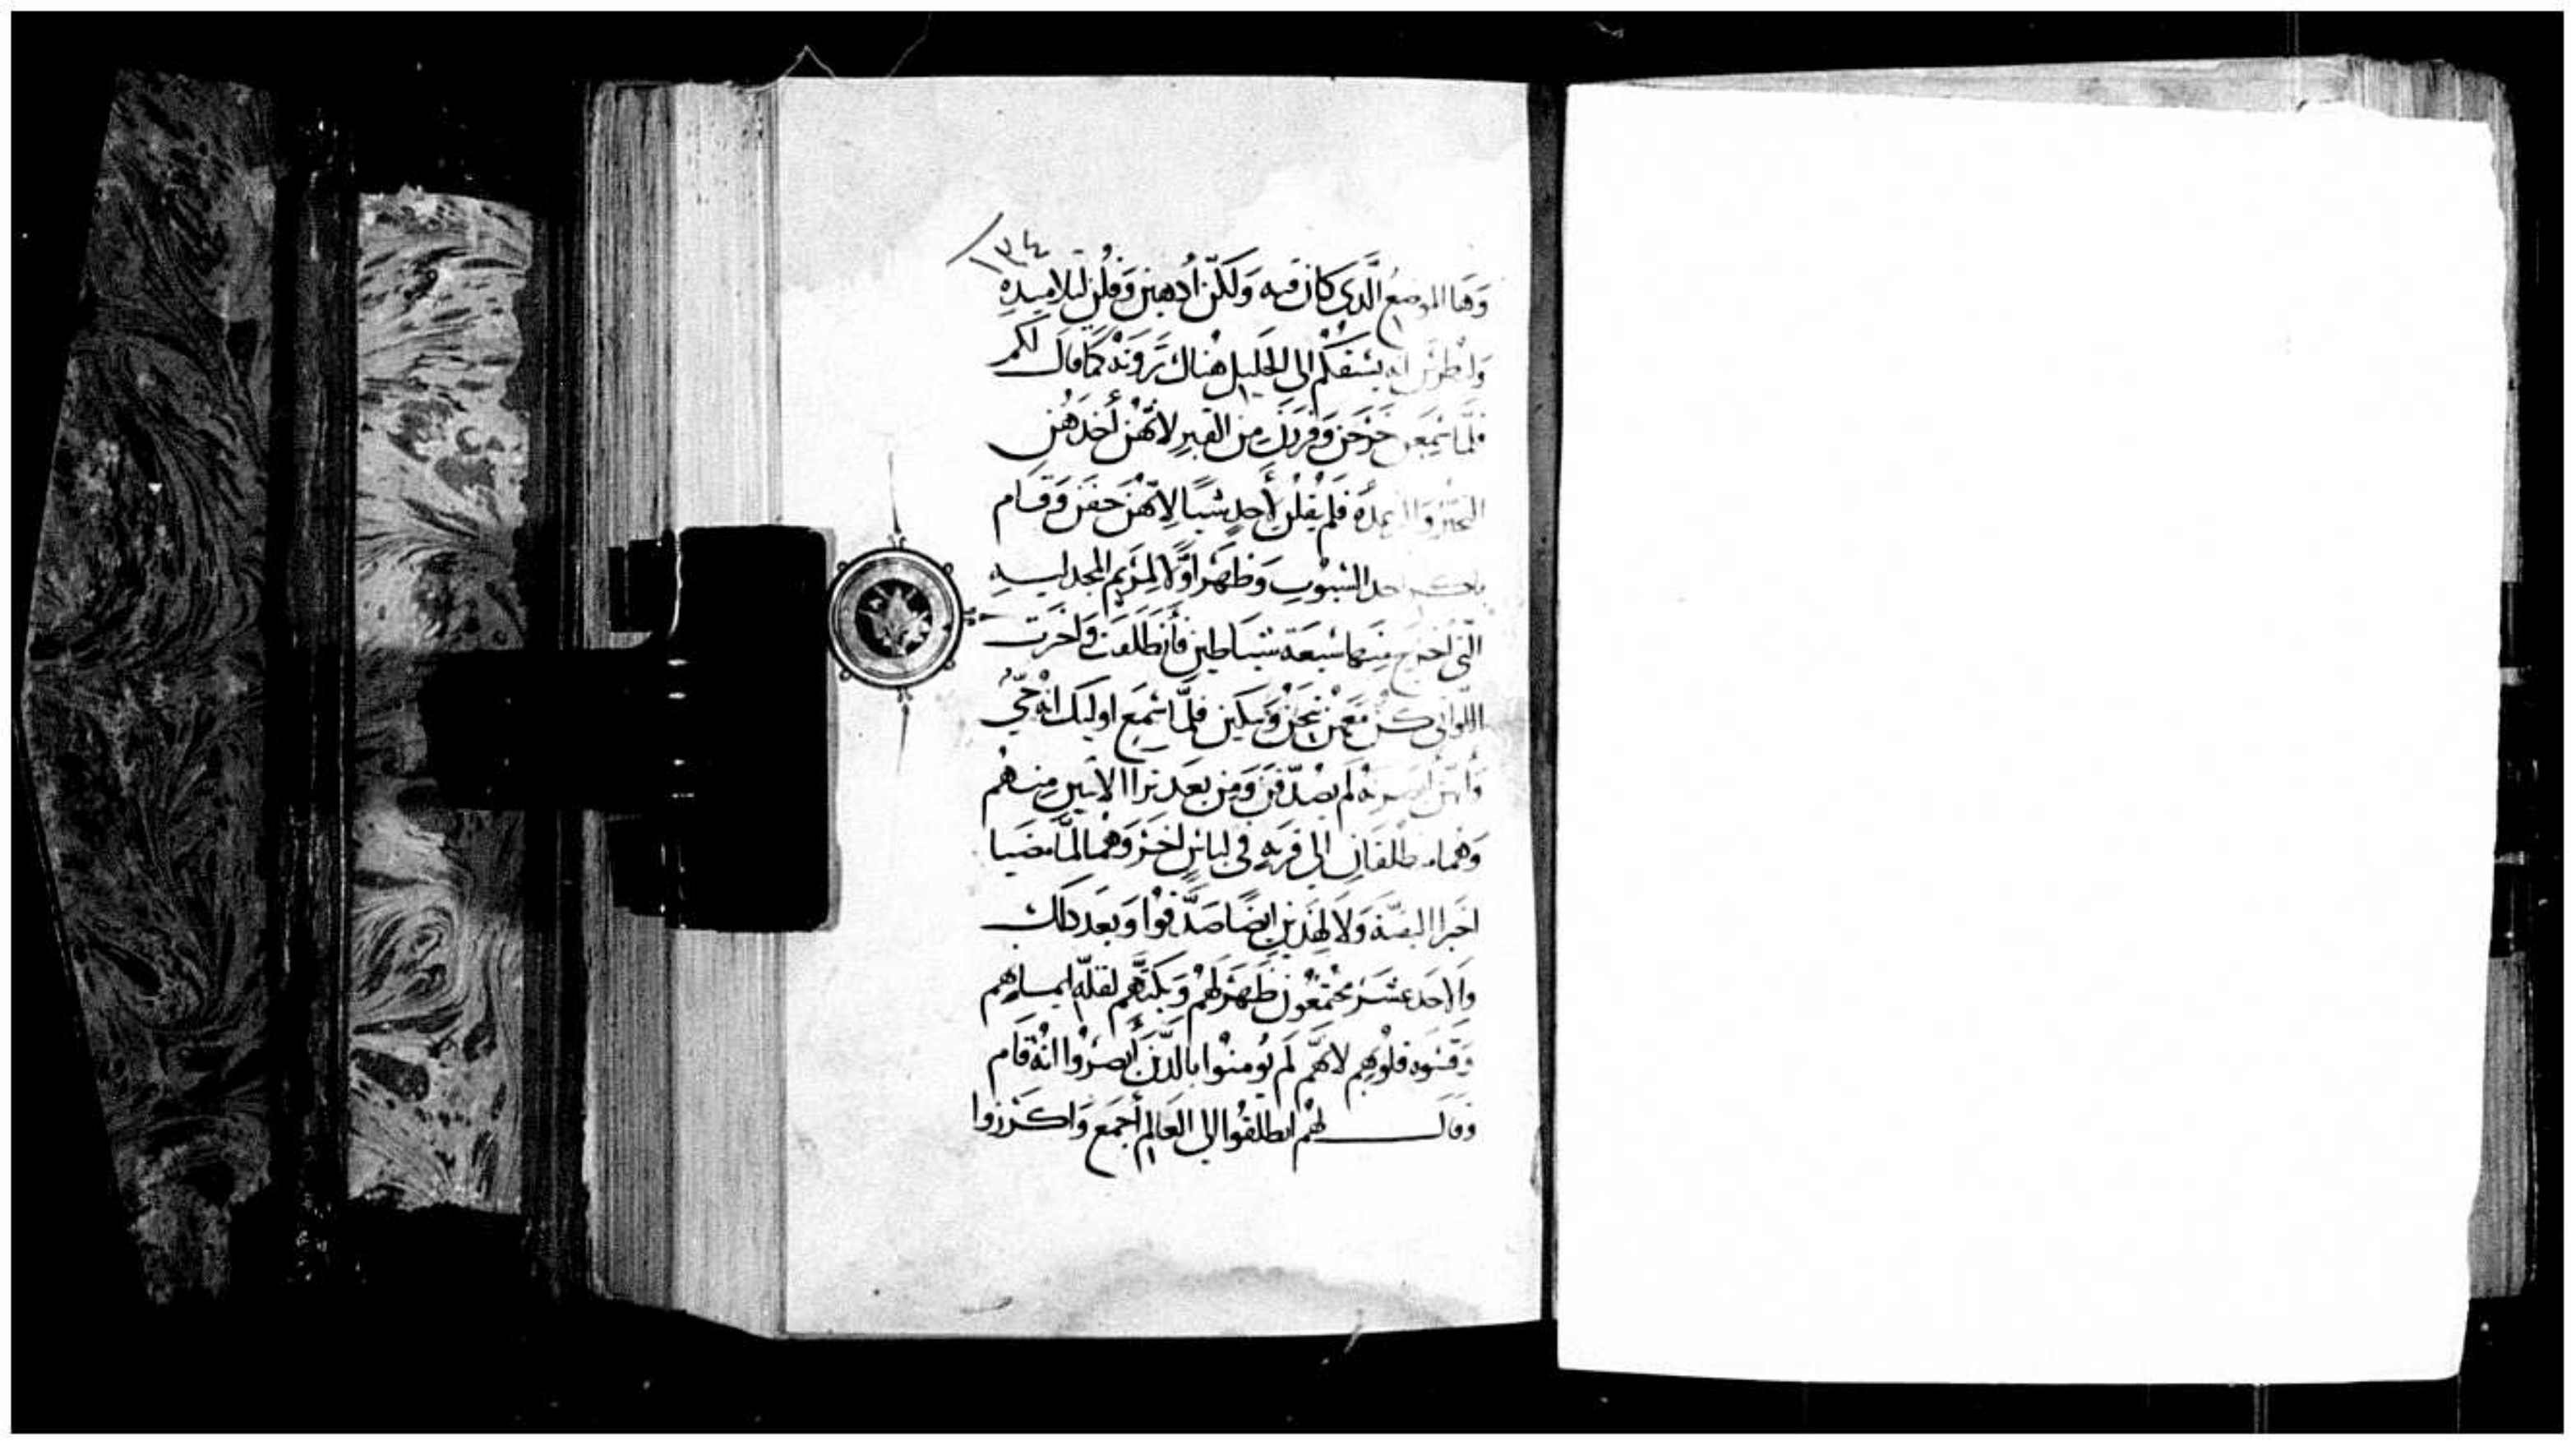 ١٣٤
وَهَا الموضعُ الَّذى كَانَ فيه وَلَكِنّ اُدهبن وَقُلن لتلاميده
وَلبُطرُس انه يسْبقكُم الى الجَليل هُناك تَروْنَهُ كمَا قال لكم
فلمَّا سَمعن خَرَجنَ وَفرَرْن من القبرِ لانَّهُنّ أَخَدَهُن
التحيّر وَالرعدَه فَلم يقُلن لأَحدٍ شيًا لانّهُنّ خفنَ وَقَام
باكر احد السُبوت وَظهَر اوّلًا لمَريم المجدليه
التى اخرج منهَا سَبعَة شيَاطين فأنطَلقت وَاخبَرت
اللواتى كُن مَعهن يَنحنَ وَيبكين فلمَّا سَمع اوليك انهُ حىّ
وَأنهن ابصرنهُ لم يصدّقن وَمن بعَد ترا الاثنين منهُم
وَهُما منطلقَان الى قريه فى لباسٍ اخر وَهُما لمَّا مضَيا
اخبَرا البقيّة وَلا لهَذين ايضًا صَدَّقوا وَبعَد دلك
والاحد عشر مجْتمعُون ظهَر لهُم وَبكتَهُم لقلّه ايمانهم
وَقسوه قلوبهم لانهُم لَم يُومنوا بالَّدين أَبصَرُوا انهُ قَام
وَقال لهُم انطلقُوا الى العَالم أَجمع وَاكرزوا